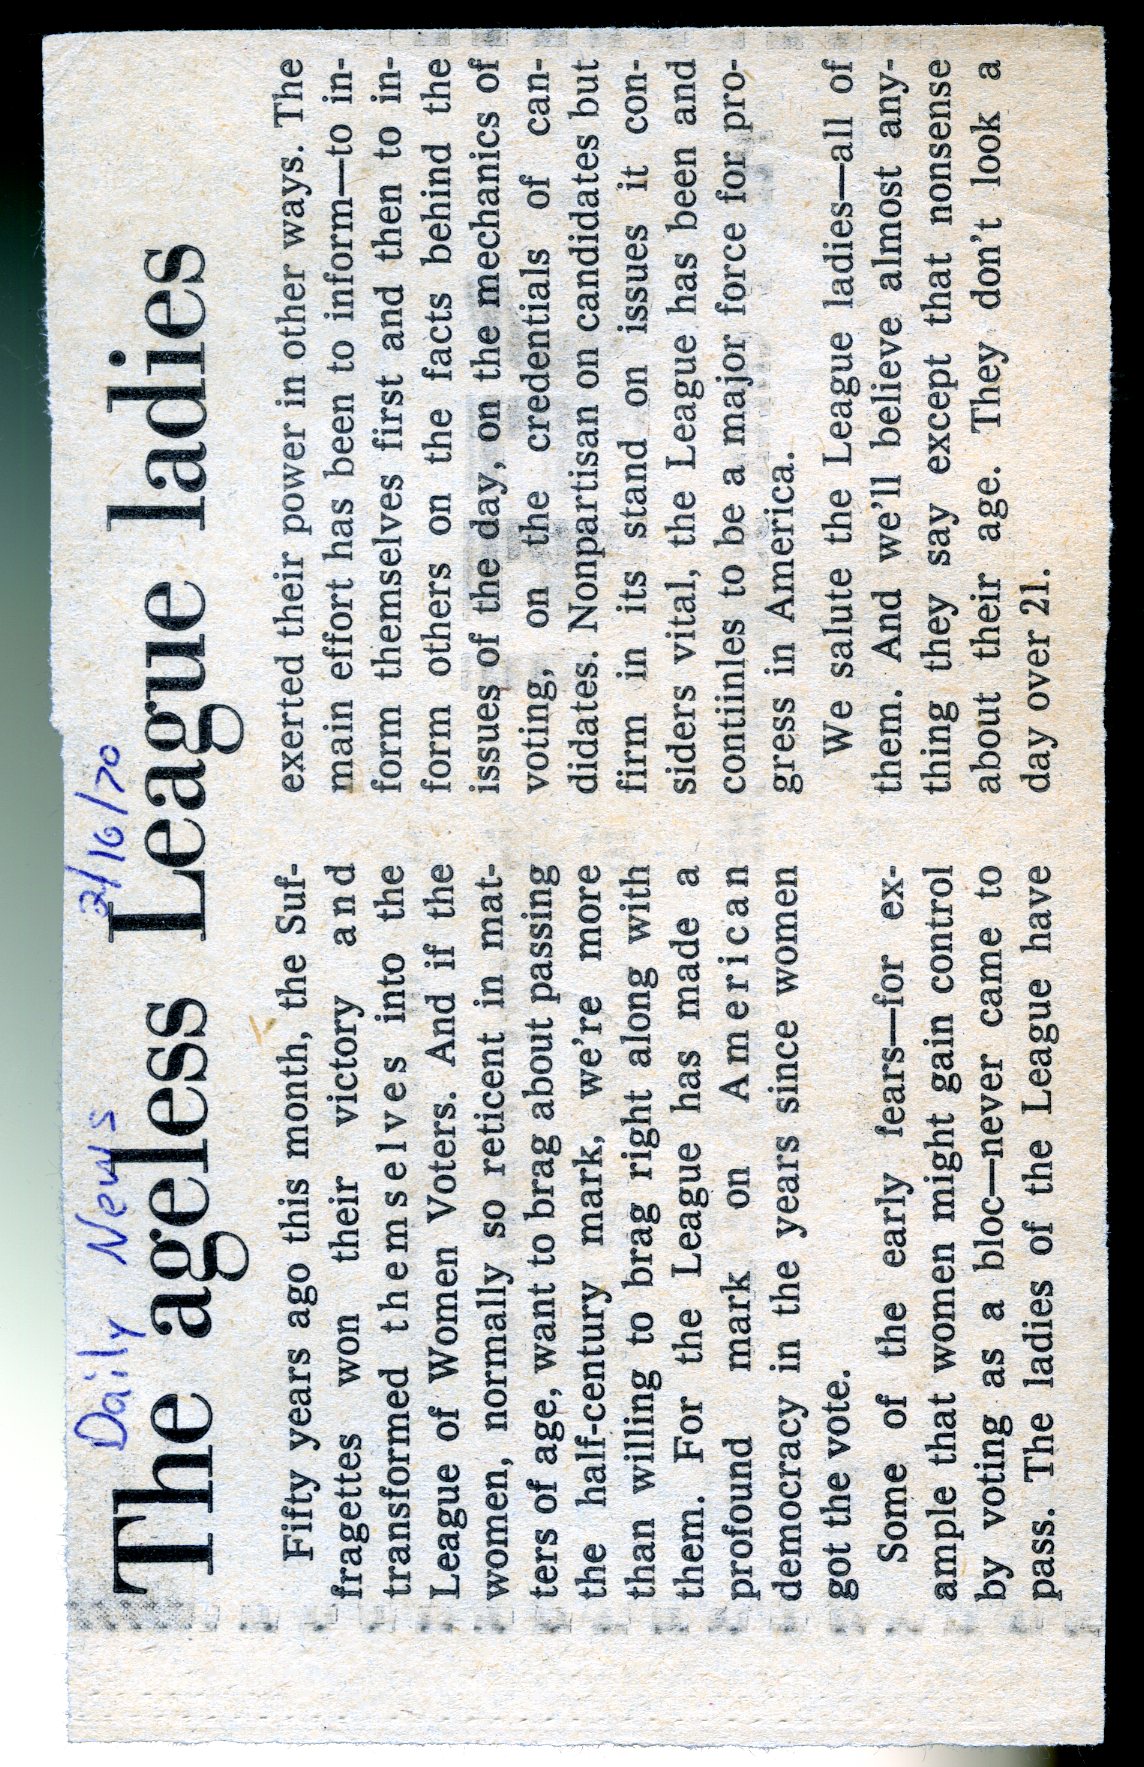 Daily News 2/16/70
The ageless League ladies
Fifty years ago this month, the Suf-
fragettes won their victory and
transformed themselves into the
League of Women Voters. And if the
women, normally so reticent in mat-
ters of age, want to brag about passing
the half-century mark, we're more
than willing to brag right along with
them. For the League has made a
profound mark on American
democracy in the years since women
got the vote.
Some of the early fears—for ex-
ample that women might gain control
by voting as a bloc—never came to
pass. The ladies of the League have
exerted their power in other ways. The
main effort has been to inform—to in-
form themselves first and then to in-
form others on the facts behind the
issues of the day, on the mechanics of
voting, on the credentials of can-
didates. Nonpartisan on candidates but
firm in its stand on issues it con-
siders vital, the League has been and
contiinles to be a major force for pro-
gress in America.
We salute the League ladies—all of
them. And we'll believe almost any-
thing they say except that nonsense
about their age. They don't look a
day over 21.